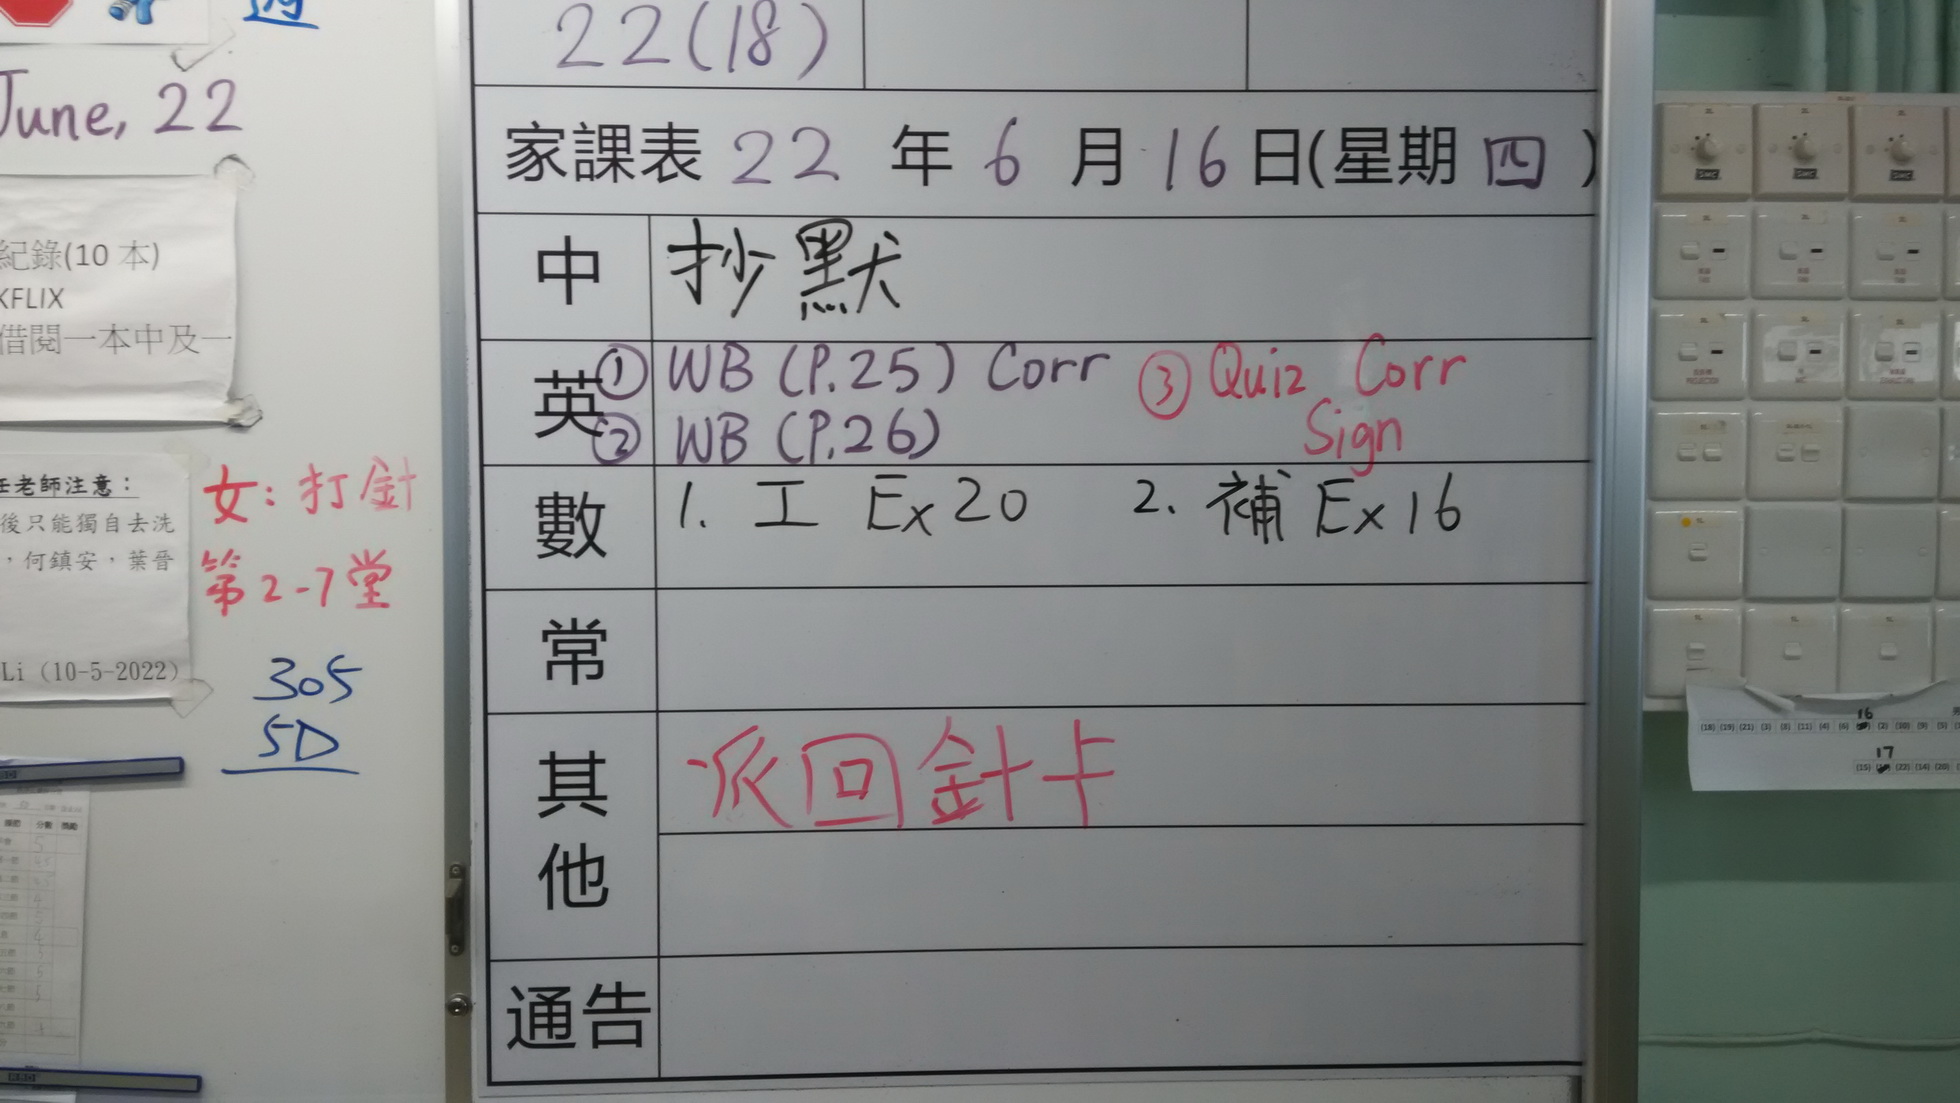 週
June, 22
紀錄(10 本)
XFLIX
借閱一本中及一
任老師注意：
後只能獨自去洗
，何鎮安，葉晉
Li (10-5-2022)
女：打針
第2-7堂
305
5D
22(18)
家課表 22 年 6 月 16 日(星期 四 )
中 抄默
英 ① WB (P.25) Corr ③ Quiz Corr
② WB (P.26) Sign
數 1. 工 Ex 20 2. 補 Ex 16
常
其他 派回針卡
通告
16
(18) (19) (21) (3) (8) (11) (4) (6) (2) (10) (9) (5)
17
(15) (22) (14) (20)